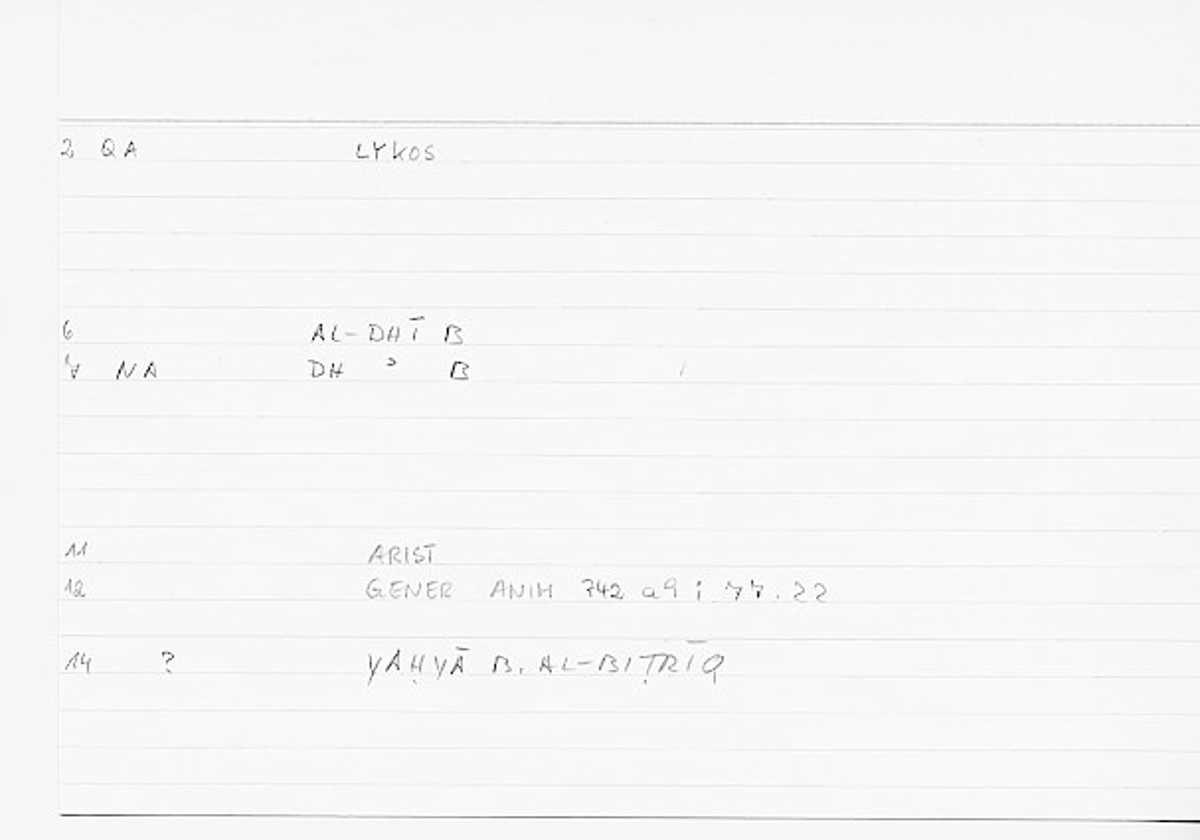 2 QA LYKOS
6 AL-DHĪ B
7 NA DH ʾ B
11 ARIST
12 GENER ANIM 742 a9 ; 77.22
14 ? YAḤYĀ B. AL-BIṬRĪQ